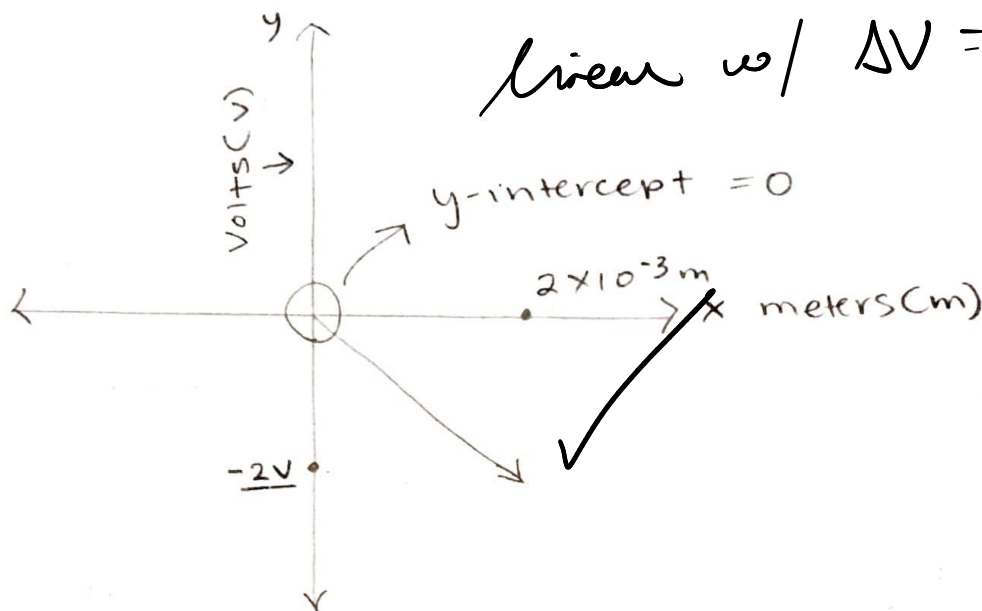 y
linear w/ ΔV =
Volts(V) →
y-intercept = 0
2×10⁻³ m
x meters(m)
-2V